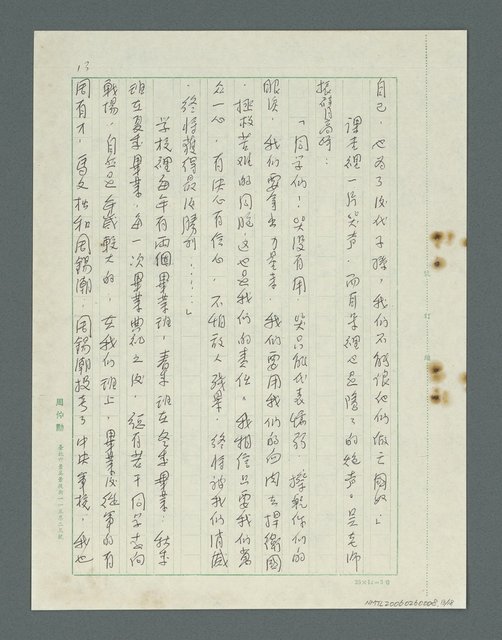 自己,也為了後代子孫,我們不能跟他們做亡國奴。」
課堂裡一片哭声,而日本裡也是隱隱的炮声。吳老師
振臂高呼:
「同學們!哭沒有用,哭只能代表懦弱,擦乾你們的
眼淚,我們要拿出力量來,我們要用我們的血肉去捍衛國
,拯救苦难的同胞,这也是我們的責任。我相信只要我們萬
众一心,有决心有信心,不怕敌人残暴,終將被我們消滅
,終將獲得最後勝利……」
學校裡每年有兩個畢業班,春季班在冬季畢業,秋季
班在夏季畢業,每一次畢業典礼之後,總有若干同學走向
戰場,自然是年歲較大的,在我們班上,畢業後從軍的有
周有才,馬文楷和周錫潮,周錫潮投考了中央軍校,我也
13
周伯勳
25×12=300
NMTL20060260008 13/18